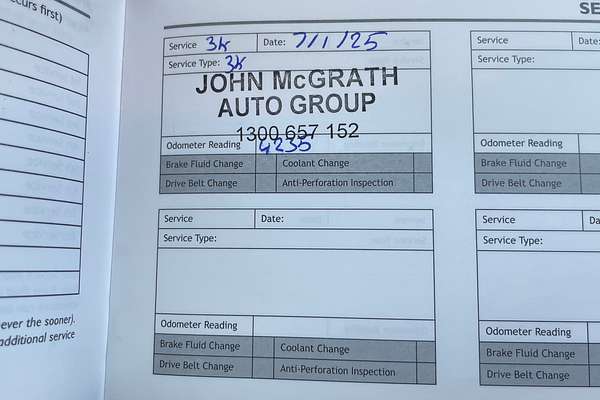 curs first)
ever the sooner).
additional service
SE
Service 3k Date: 7/1/25
Service Type: 3k
JOHN McGRATH
AUTO GROUP
1300 657 152
Odometer Reading 4235
Brake Fluid Change Coolant Change
Drive Belt Change Anti-Perforation Inspection
Service Date:
Service Type:
Odometer Reading
Brake Fluid Change Coolant Change
Drive Belt Change Anti-Perforation Inspection
Service Date:
Service Type:
Odometer Reading
Brake Fluid Change
Drive Belt Change
Service Da
Service Type:
Odometer Reading
Brake Fluid Change
Drive Belt Change